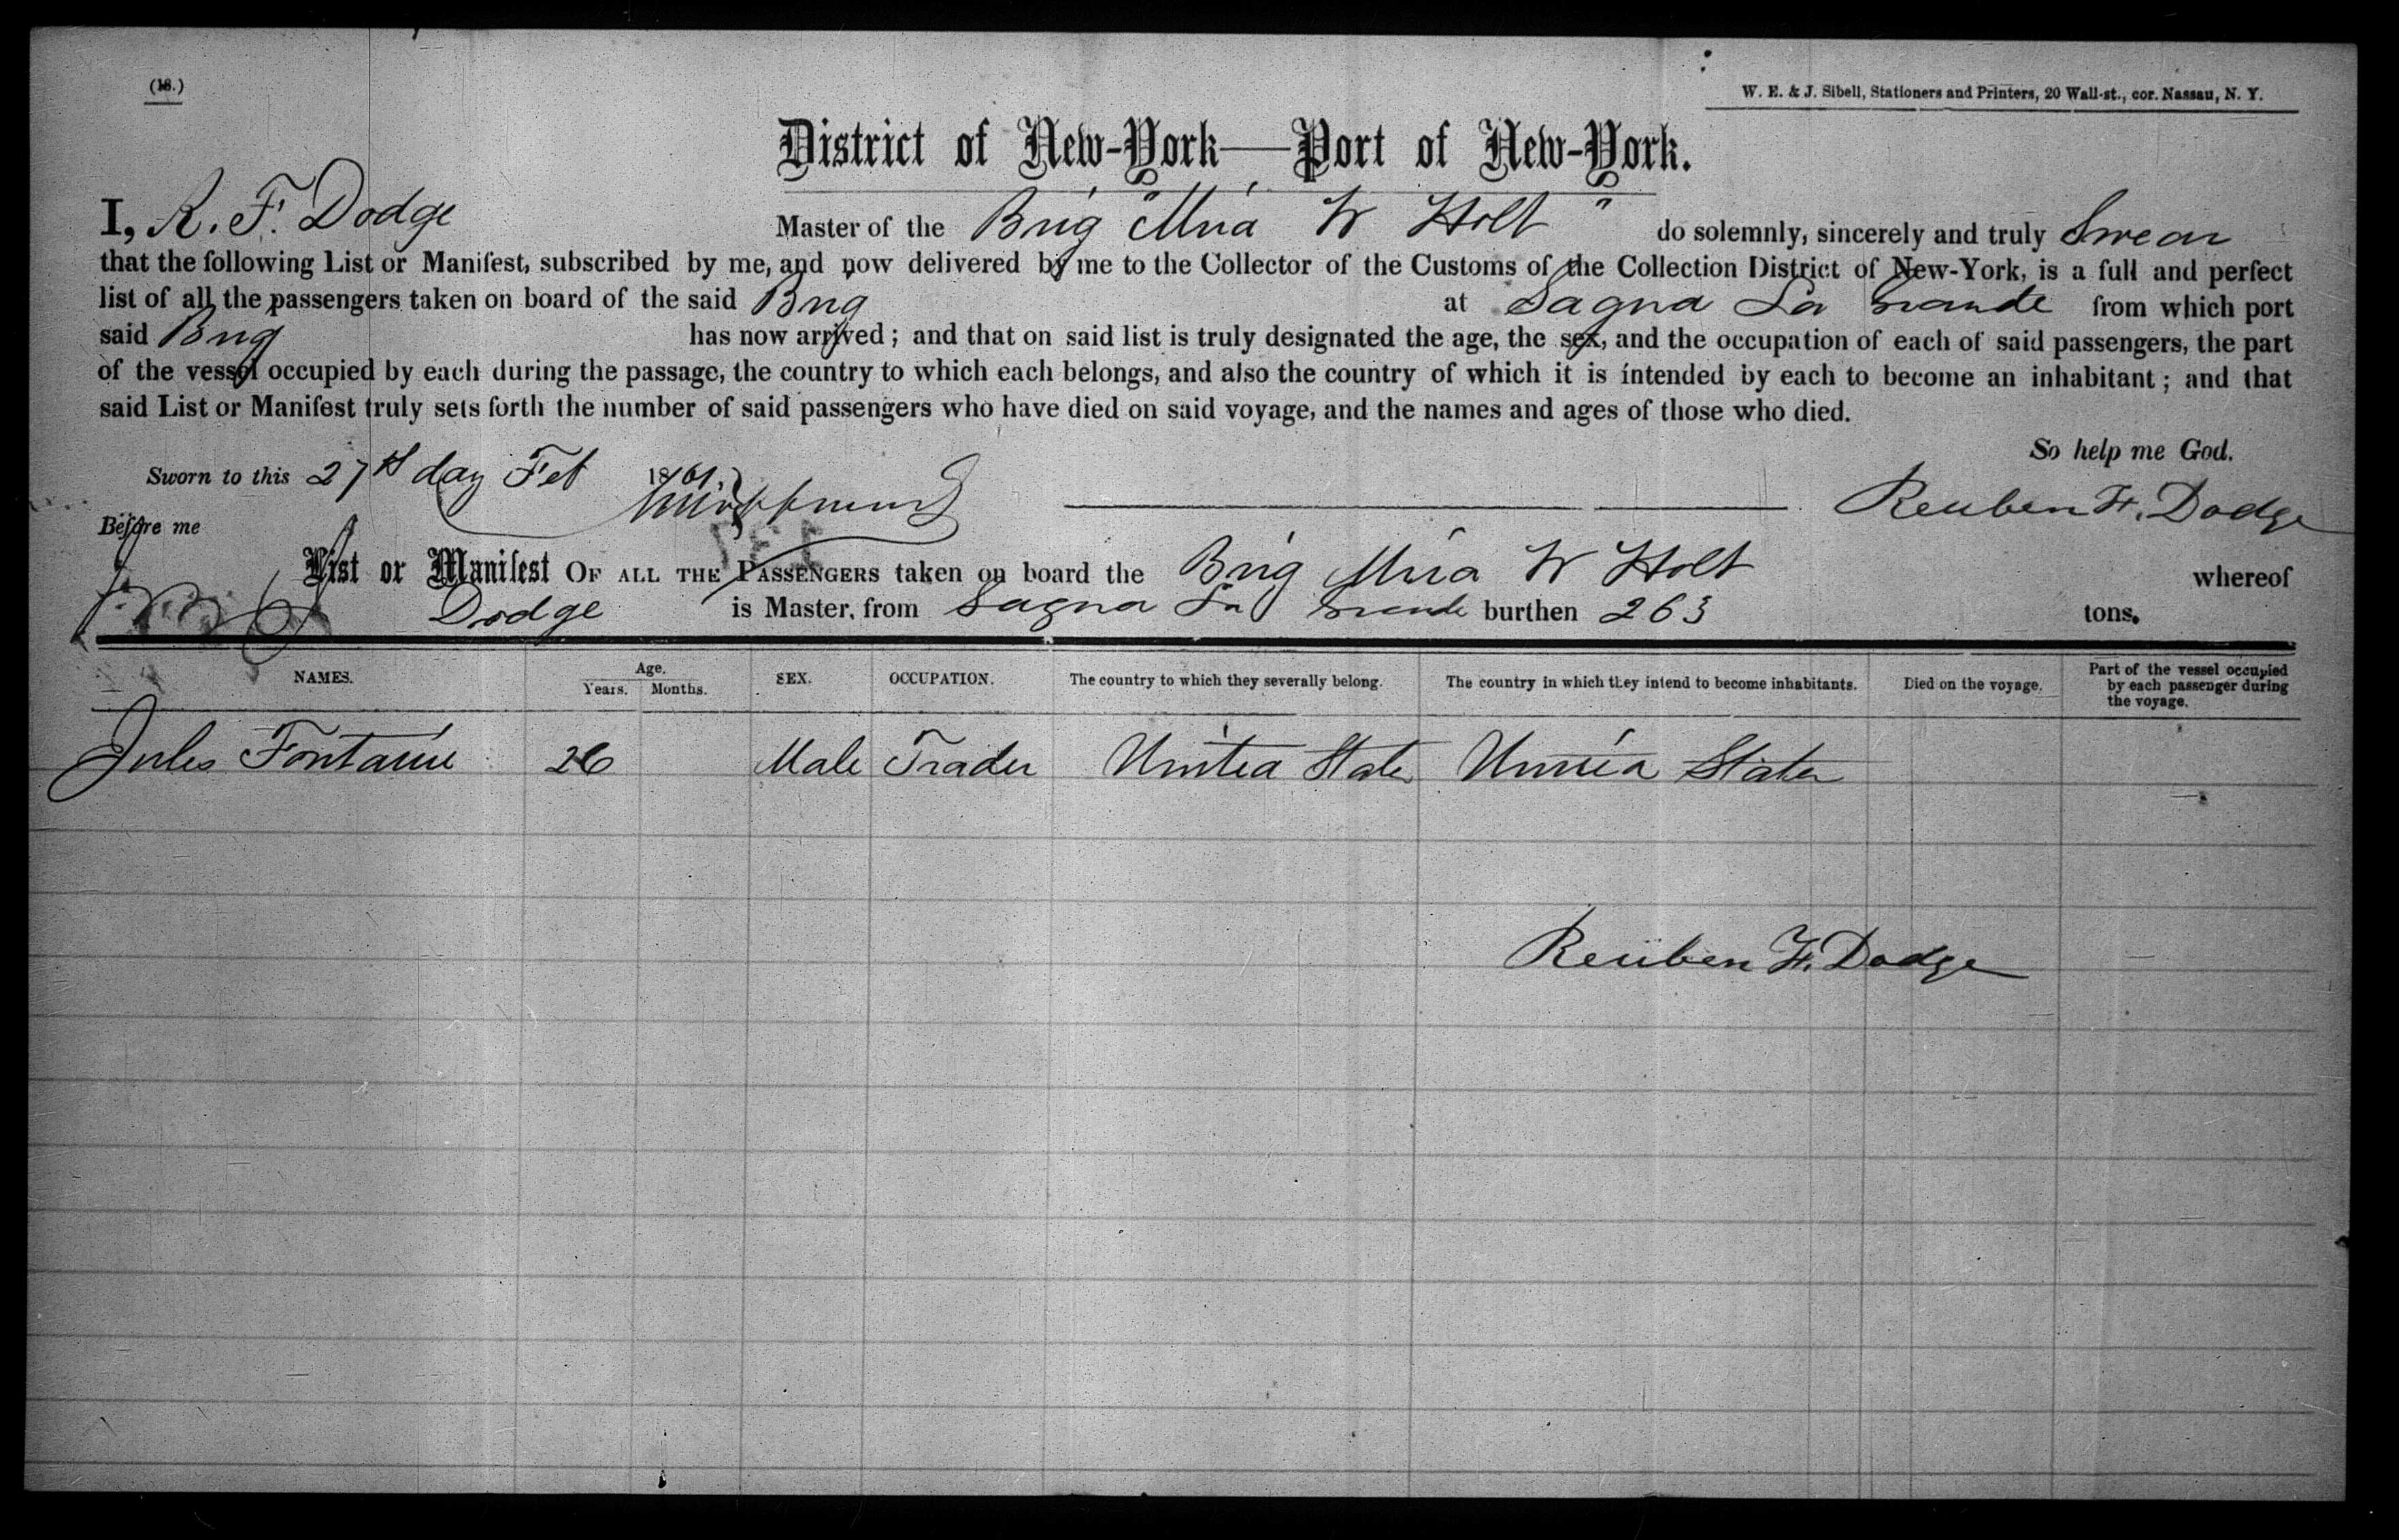 (18.)
W. E. & J. Sibell, Stationers and Printers, 20 Wall-st., cor. Nassau, N. Y.
District of New-York—Port of New-York.
I, R. F. Dodge Master of the Brig "Mira W Holt" do solemnly, sincerely and truly Swear
that the following List or Manifest, subscribed by me, and now delivered by me to the Collector of the Customs of the Collection District of New-York, is a full and perfect
list of all the passengers taken on board of the said Brig at Sagua La Grande from which port
said Brig has now arrived; and that on said list is truly designated the age, the sex, and the occupation of each of said passengers, the part
of the vessel occupied by each during the passage, the country to which each belongs, and also the country of which it is intended by each to become an inhabitant; and that
said List or Manifest truly sets forth the number of said passengers who have died on said voyage, and the names and ages of those who died.
So help me God.
Sworn to this 27th day Feb 1861. Reuben F. Dodge
Before me
List or Manifest OF ALL THE PASSENGERS taken on board the Brig Mira W Holt whereof
Dodge is Master, from Sagua La Grande burthen 263 tons.
NAMES. Age. Years. Months. SEX. OCCUPATION. The country to which they severally belong. The country in which they intend to become inhabitants. Died on the voyage. Part of the vessel occupied by each passenger during the voyage.
Jules Fontaine 26 Male Trader United States United States
Reuben F. Dodge